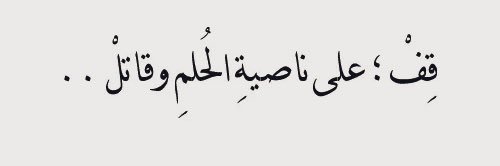 قِفْ ؛ على ناصيةِ الحُلمِ وقاتلْ . .